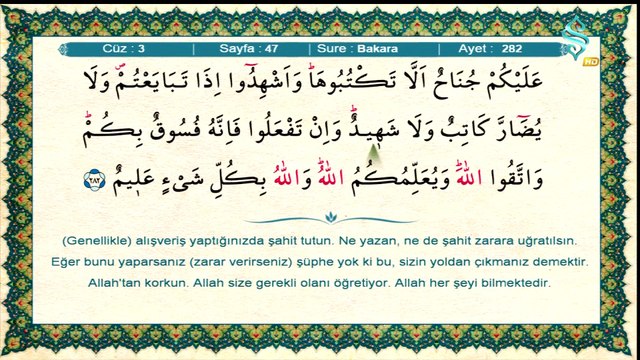 Cüz : 3 | Sayfa : 47 | Sure : Bakara | Ayet : 282
HD
عَلَيْكُمْ جُنَاحٌ اَلَّا تَكْتُبُوهَاۜ وَاَشْهِدُٓوا اِذَا تَبَايَعْتُمْۖ وَلَا
يُضَٓارَّ كَاتِبٌ وَلَا شَه۪يدٌۜ وَاِنْ تَفْعَلُوا فَاِنَّهُ فُسُوقٌ بِكُمْۜ
وَاتَّقُوا اللّٰهَۜ وَيُعَلِّمُكُمُ اللّٰهُۜ وَاللّٰهُ بِكُلِّ شَيْءٍ عَل۪يمٌ ﴿٢٨٢﴾
(Genellikle) alışveriş yaptığınızda şahit tutun. Ne yazan, ne de şahit zarara uğratılsın.
Eğer bunu yaparsanız (zarar verirseniz) şüphe yok ki bu, sizin yoldan çıkmanız demektir.
Allah'tan korkun. Allah size gerekli olanı öğretiyor. Allah her şeyi bilmektedir.